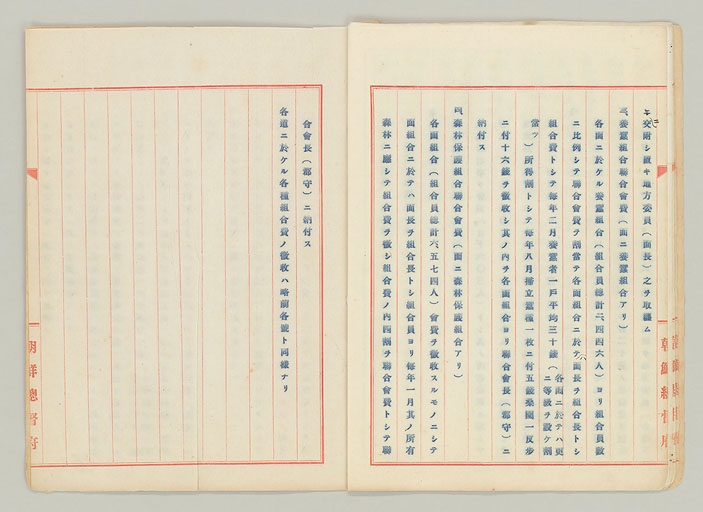 ヲ交附シ置キ地方委員（面長）之ヲ取纒ム
三、養蠶組合聯合會費（面ニ養蠶組合アリ）
各面ニ於ケル養蠶組合（組合員總計三、四四六人）ヨリ組合員數
ニ比例シテ聯合會費ヲ割當テ各面組合ニ於テハ面長ヲ組合長トシ
組合費トシテ每年二月養蠶者一戶平均三十錢（各面ニ於テハ更ニ等級ヲ設ケ割
當ツ）所得割トシテ每年八月掃立蠶種一枚ニ付五錢桑園一反步
ニ付十六錢ヲ徵收シ其ノ內ヲ各面組合ヨリ聯合會長（郡守）ニ
納付ス
四、森林保護組合聯合會費（面ニ森林保護組合アリ）
各面組合（組合員總計六、五七四人）會費ヲ徵收スルモノニシテ
面組合ニ於テハ面長ヲ組合長トシ組合員ヨリ每年一月其ノ所有
森林ニ應シテ組合費ヲ徵シ組合費ノ內四割ヲ聯合會費トシテ聯
朝鮮總督府
合會長（郡守）ニ納付ス
各道ニ於ケル各種組合費ノ徵收ハ略前各號ト同樣ナリ
朝鮮總督府